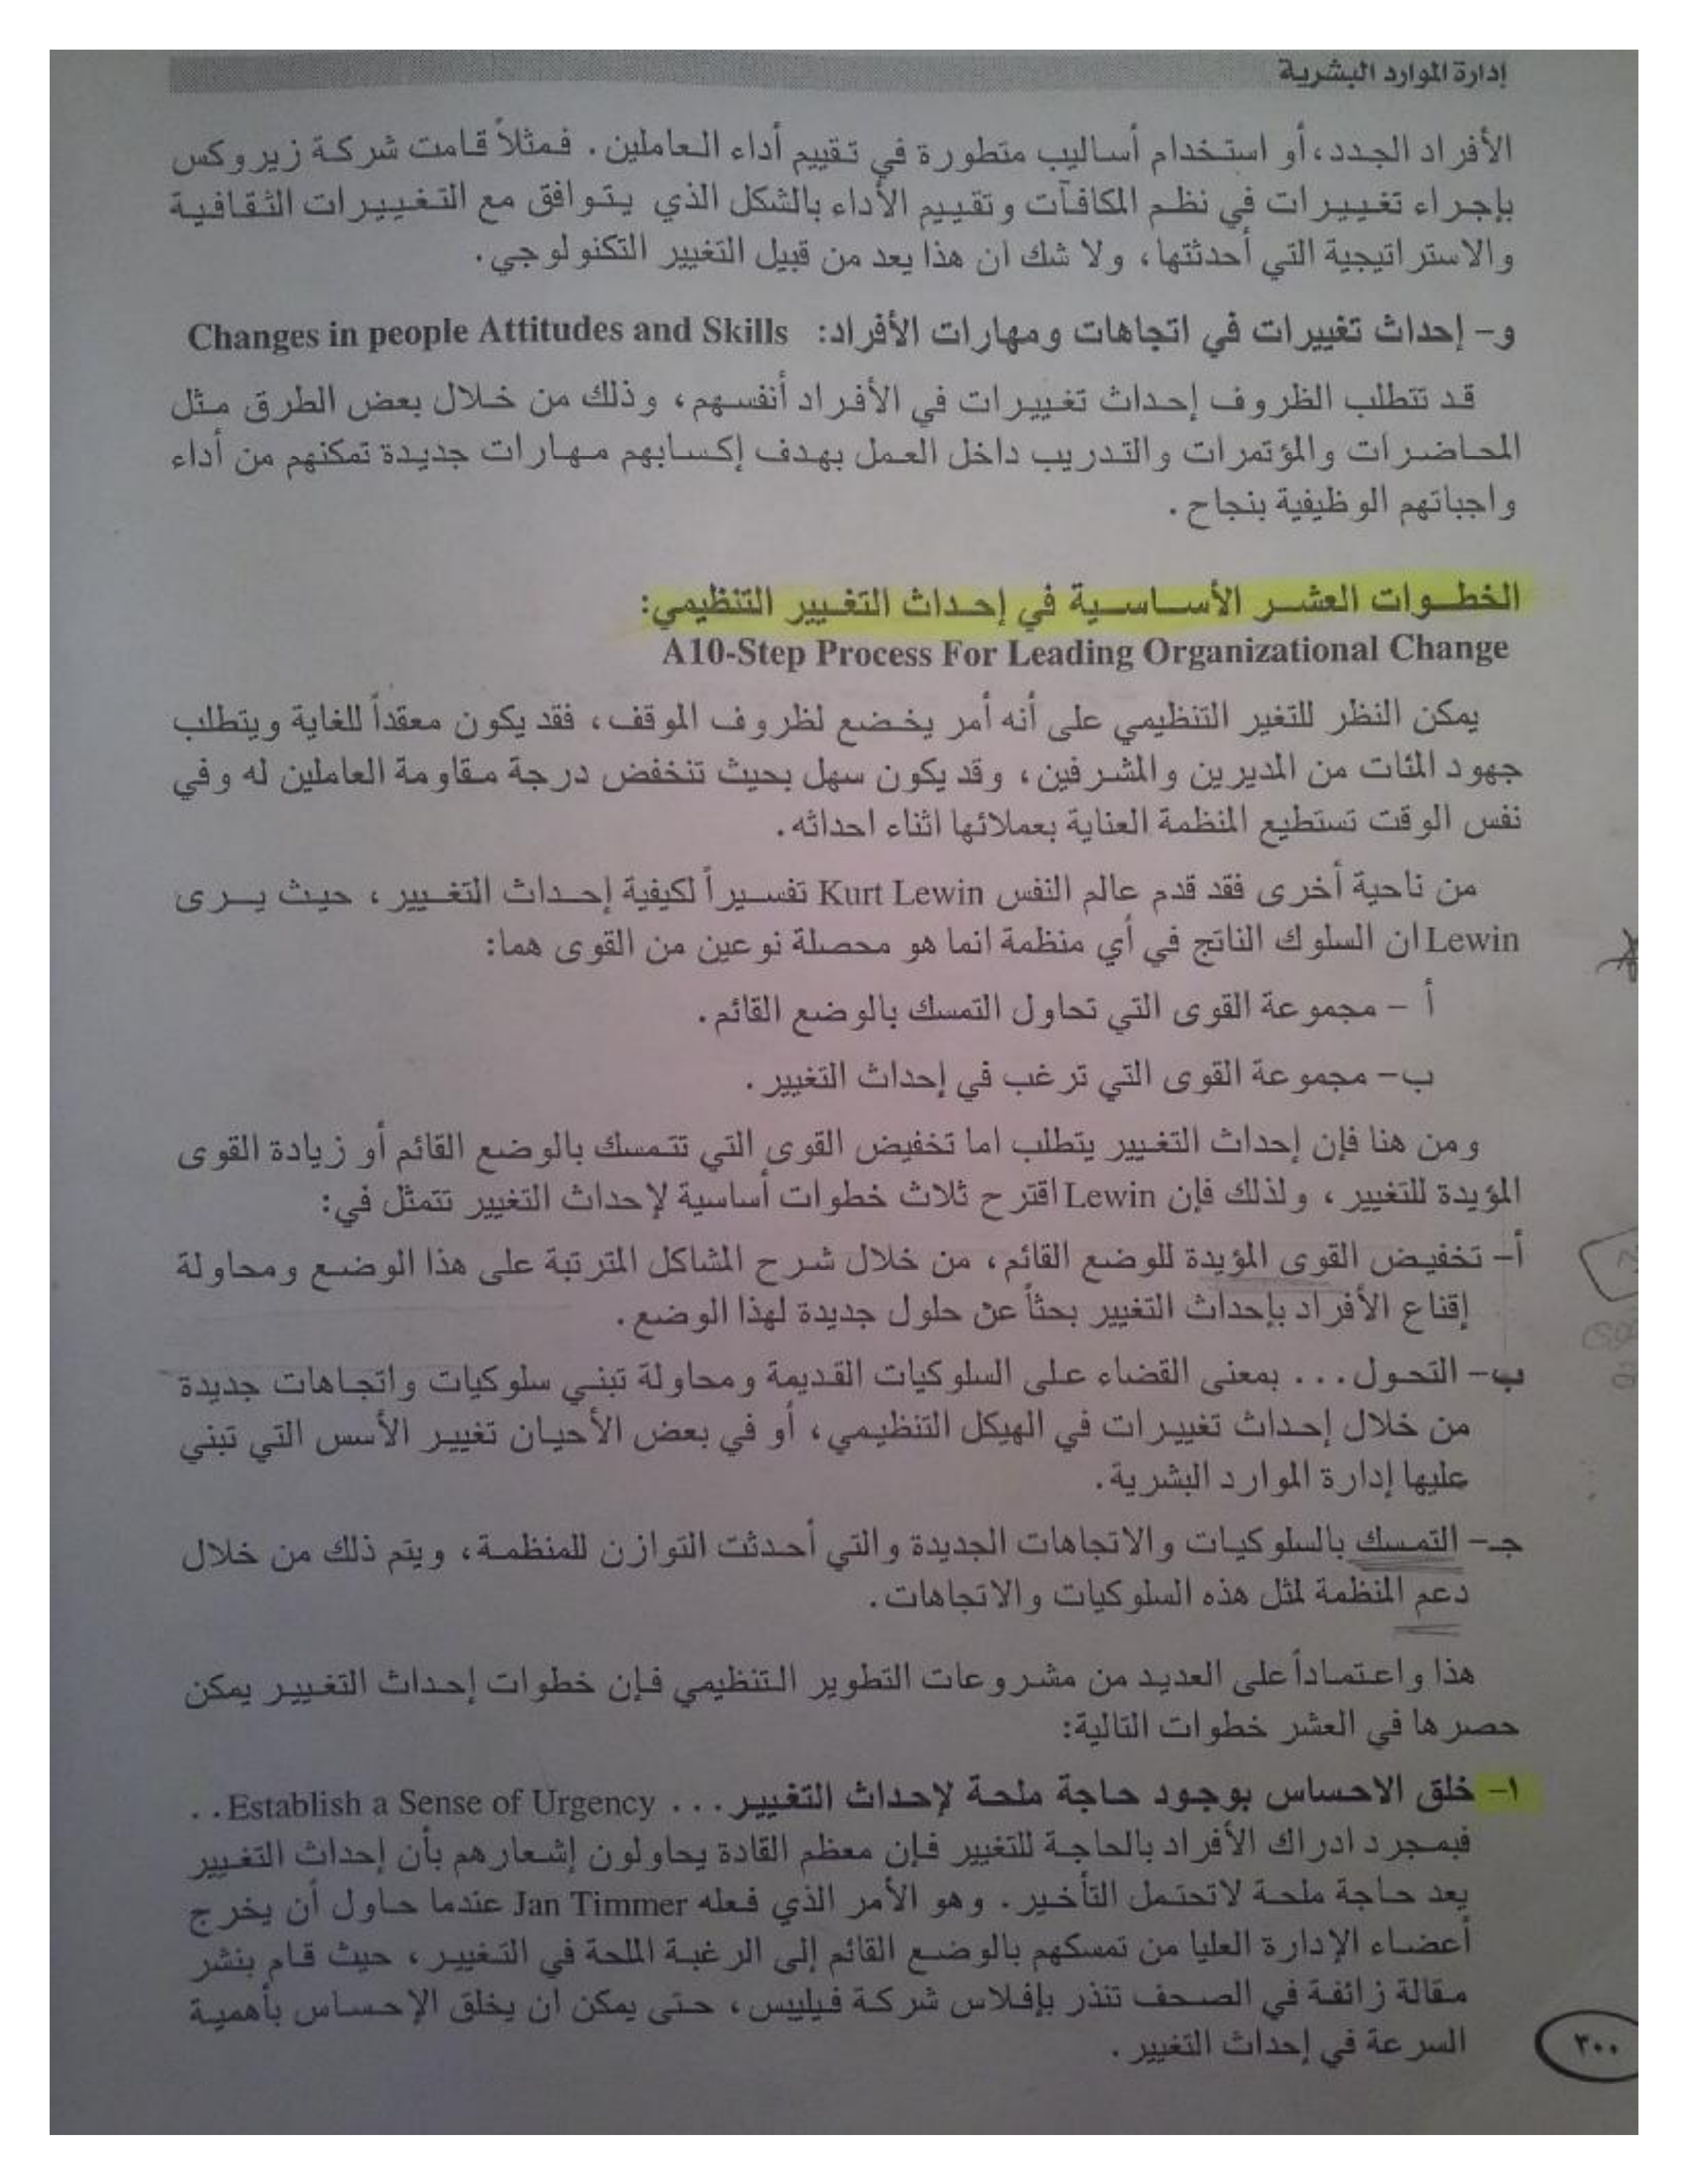 إدارة الموارد البشرية
الأفراد الجدد، أو استخدام أساليب متطورة في تقييم أداء العاملين. فمثلاً قامت شركة زيروكس
بإجراء تغييرات في نظم المكافآت وتقييم الأداء بالشكل الذي يتوافق مع التغييرات الثقافية
والاستراتيجية التي أحدثتها، ولا شك ان هذا يعد من قبيل التغيير التكنولوجي.
و- إحداث تغييرات في اتجاهات ومهارات الأفراد: Changes in people Attitudes and Skills
قد تتطلب الظروف إحداث تغييرات في الأفراد أنفسهم، وذلك من خلال بعض الطرق مثل
المحاضرات والمؤتمرات والتدريب داخل العمل بهدف إكسابهم مهارات جديدة تمكنهم من أداء
واجباتهم الوظيفية بنجاح.
الخطوات العشر الأساسية في إحداث التغيير التنظيمي:
A10-Step Process For Leading Organizational Change
يمكن النظر للتغير التنظيمي على أنه أمر يخضع لظروف الموقف، فقد يكون معقداً للغاية ويتطلب
جهود المئات من المديرين والمشرفين، وقد يكون سهل بحيث تنخفض درجة مقاومة العاملين له وفي
نفس الوقت تستطيع المنظمة العناية بعملائها اثناء احداثه.
من ناحية أخرى فقد قدم عالم النفس Kurt Lewin تفسيراً لكيفية إحداث التغيير، حيث يرى
Lewin ان السلوك الناتج في أي منظمة انما هو محصلة نوعين من القوى هما:
أ - مجموعة القوى التي تحاول التمسك بالوضع القائم.
ب- مجموعة القوى التي ترغب في إحداث التغيير.
ومن هنا فإن إحداث التغيير يتطلب اما تخفيض القوى التي تتمسك بالوضع القائم أو زيادة القوى
المؤيدة للتغيير، ولذلك فإن Lewin اقترح ثلاث خطوات أساسية لإحداث التغيير تتمثل في:
أ- تخفيض القوى المؤيدة للوضع القائم، من خلال شرح المشاكل المترتبة على هذا الوضع ومحاولة
إقناع الأفراد بإحداث التغيير بحثاً عن حلول جديدة لهذا الوضع.
ب- التحول... بمعنى القضاء على السلوكيات القديمة ومحاولة تبني سلوكيات واتجاهات جديدة
من خلال إحداث تغييرات في الهيكل التنظيمي، أو في بعض الأحيان تغيير الأسس التي تبني
عليها إدارة الموارد البشرية.
جـ- التمسك بالسلوكيات والاتجاهات الجديدة والتي أحدثت التوازن للمنظمة، ويتم ذلك من خلال
دعم المنظمة لمثل هذه السلوكيات والاتجاهات.
هذا واعتماداً على العديد من مشروعات التطوير التنظيمي فإن خطوات إحداث التغيير يمكن
حصرها في العشر خطوات التالية:
١- خلق الاحساس بوجود حاجة ملحة لإحداث التغيير... Establish a Sense of Urgency..
فبمجرد ادراك الأفراد بالحاجة للتغيير فإن معظم القادة يحاولون إشعارهم بأن إحداث التغيير
يعد حاجة ملحة لاتحتمل التأخير. وهو الأمر الذي فعله Jan Timmer عندما حاول أن يخرج
أعضاء الإدارة العليا من تمسكهم بالوضع القائم إلى الرغبة الملحة في التغيير، حيث قام بنشر
مقالة زائفة في الصحف تنذر بإفلاس شركة فيليبس، حتى يمكن ان يخلق الإحساس بأهمية
السرعة في إحداث التغيير.
٣٠٠